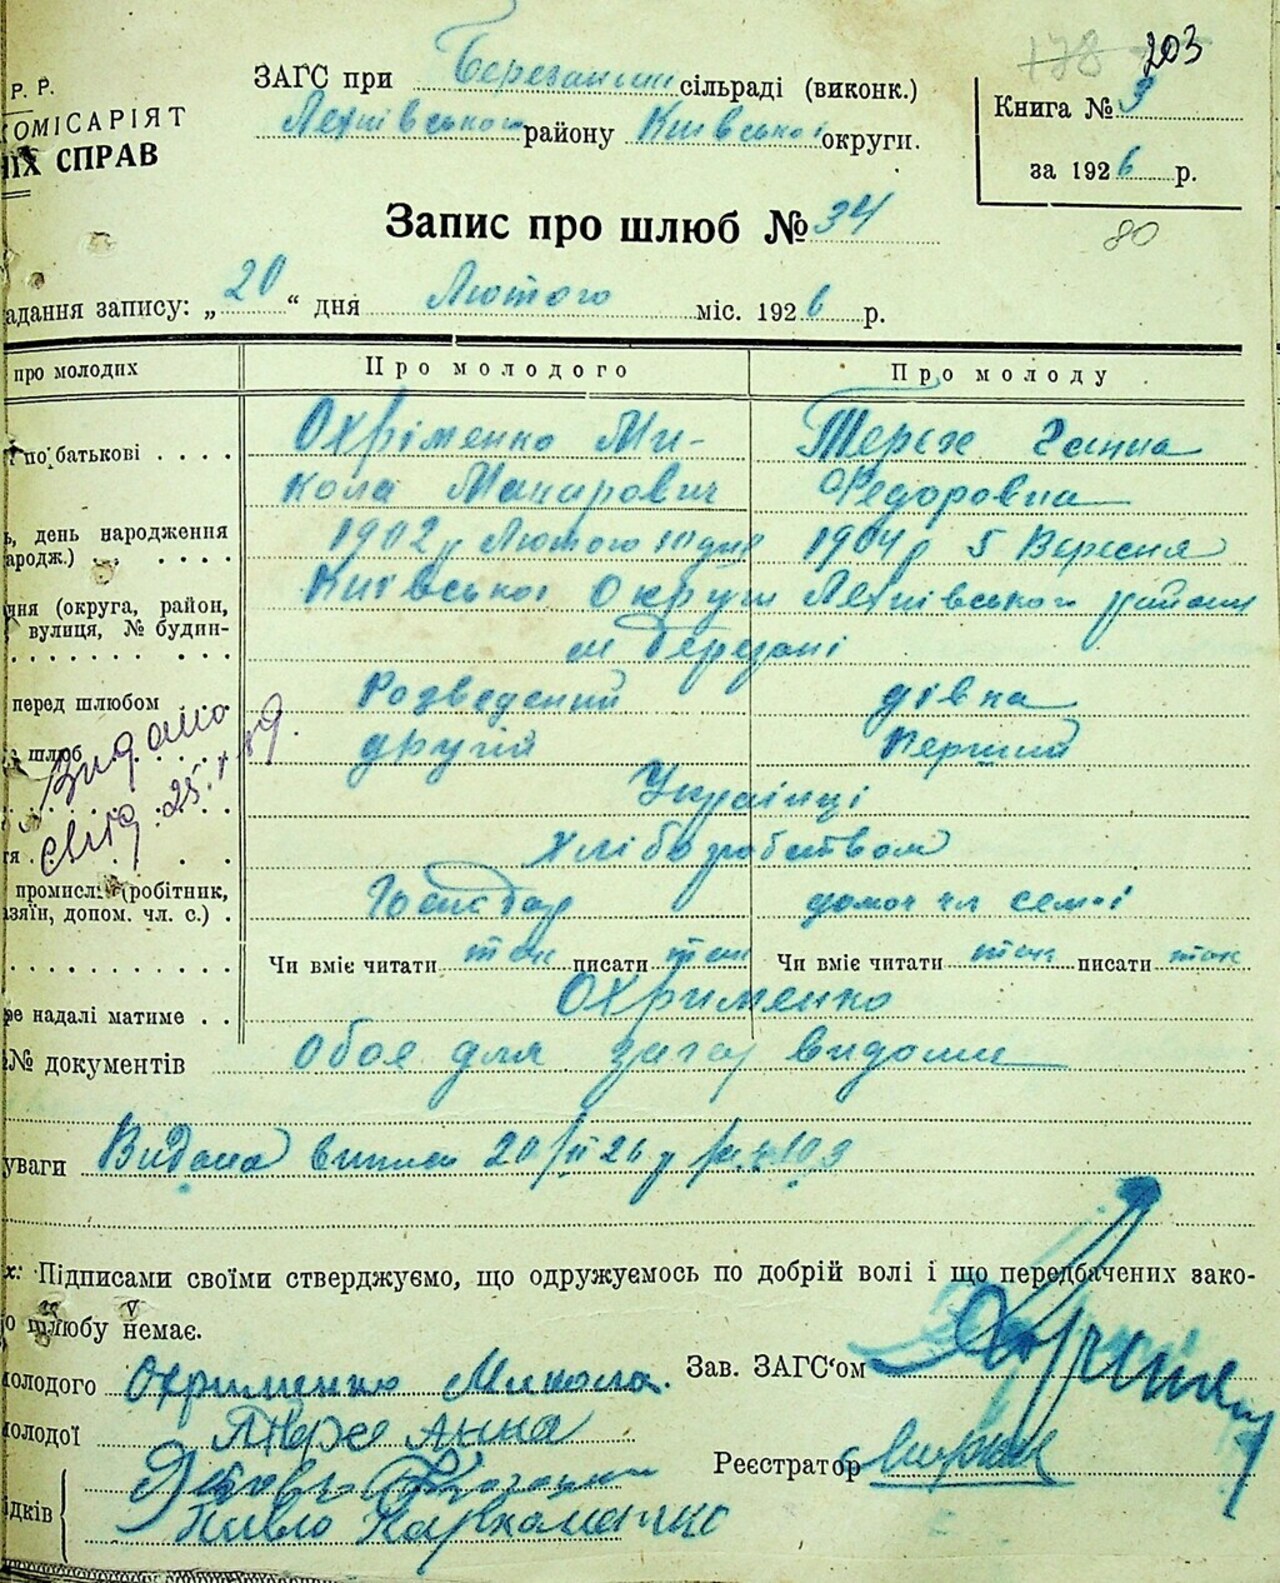 178 203
Р. Р. ЗАГС при Березанській сільраді (виконк.)
КОМІСАРІЯТ
Книга № 3
району Київської округи.
ІХ СПРАВ
за 1926 р.
Запис про шлюб № 34
80
адання запису: „20“ дня Лютого міс. 1926 р.
про молодих Про молодого Про молоду
по батькові . . . . Охріменко Ми- Ганна
кола Макарович Федоровна
ь, день народження
ародж.) . . . . 1902 р Лютого 10 дня 1904 р 5 Вересня
ня (округа, район, Київської Округи району
вулиця, № будин-
м Березані
перед шлюбом Розведений дівка
шлюб другій Перший
Видано
свід. 25.
Українці
тя . Хліборобством
промисл. (робітник,
зяїн, допом. чл. с.) . Господар допом чл семьі
Чи вміє читати так писати так Чи вміє читати так писати так
ре надалі матиме . . Охрименко
№ документів Обоє для загсу видоми
уваги Видана виписи 20/II 26 р
х: Підписами своїми стверджуємо, що одружуємось по добрій волі і що передбачених зако-
о шлюбу немає.
Зав. ЗАГС‘ом
молодого Охрименко Микола.
молодої Анна
Реєстратор
ідків
Павло Пархоменко